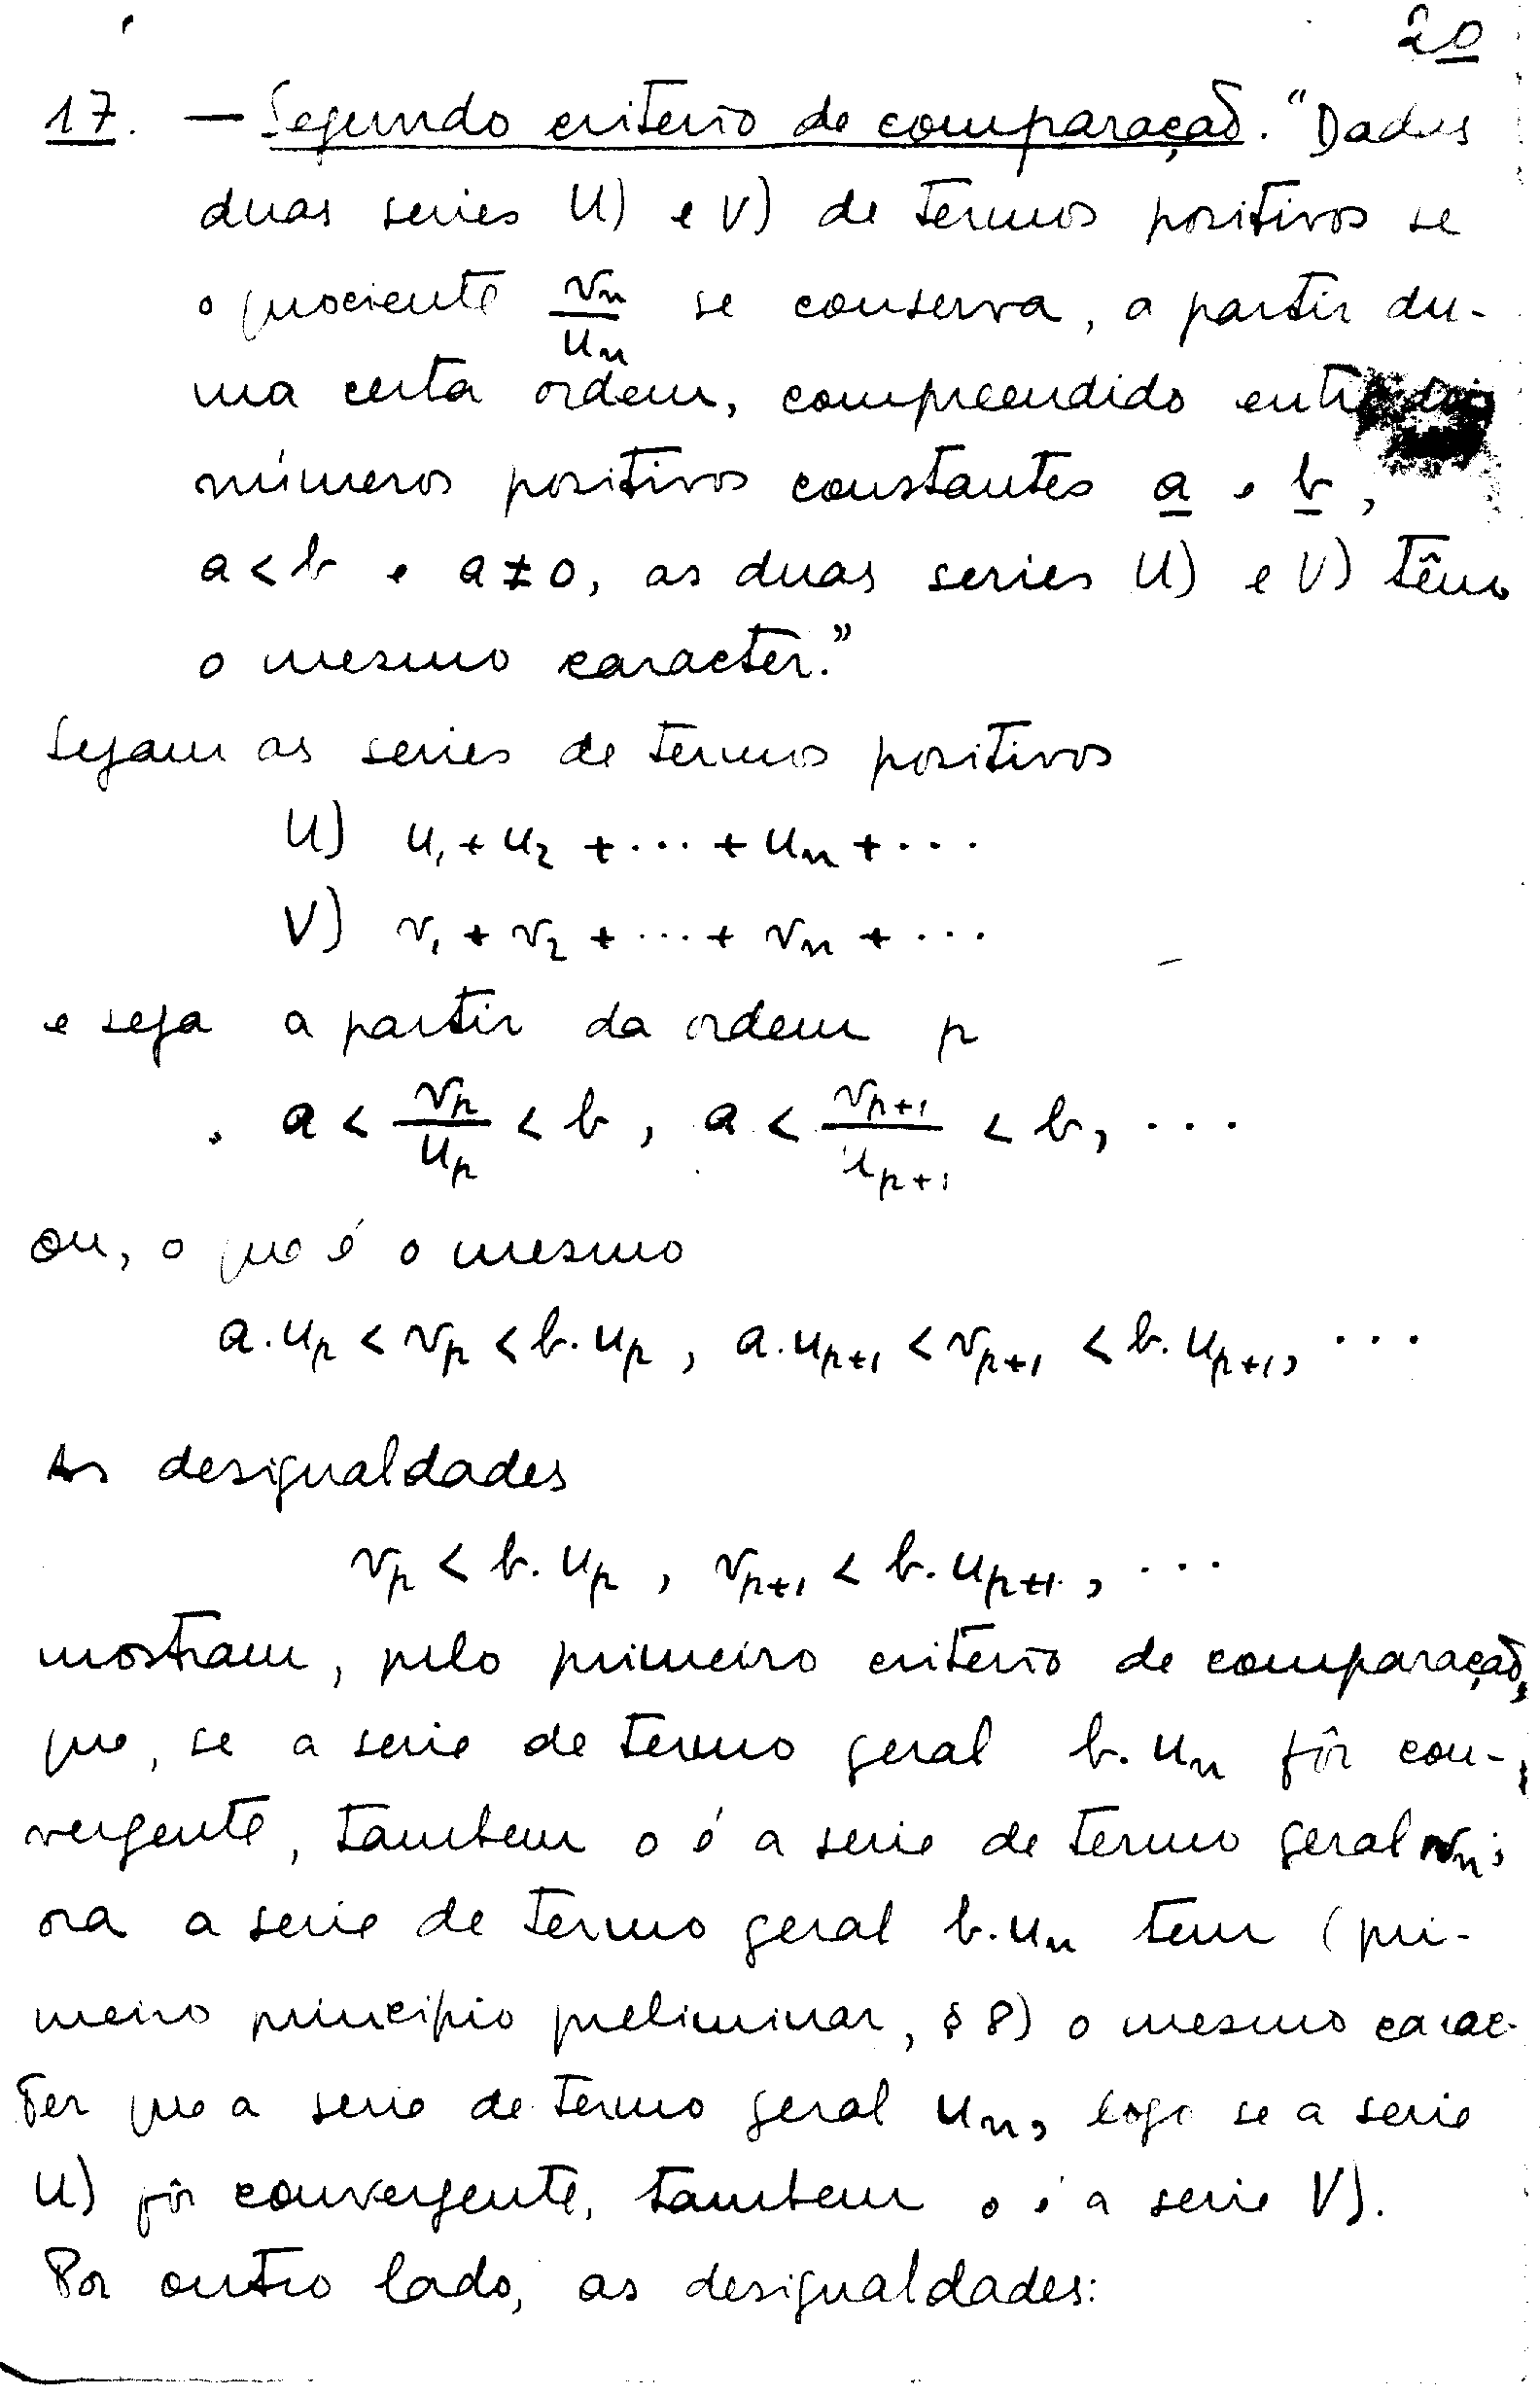 20
17. — Segundo criterio de comparação. "Dadas
duas series U) e V) de termos positivos se
o quociente v_n/u_n se conserva, a partir du-
ma certa ordem, compreendido entre dois
números positivos constantes a e b,
a < b e a ≠ 0, as duas series U) e V) têm
o mesmo caracter."
Sejam as series de termos positivos
U) u_1 + u_2 + ··· + u_n + ···
V) v_1 + v_2 + ··· + v_n + ···
e seja a partir da ordem p
a < v_p/u_p < b, a < v_{p+1}/u_{p+1} < b, ···
ou, o que é o mesmo
a.u_p < v_p < b.u_p, a.u_{p+1} < v_{p+1} < b.u_{p+1}, ···
As desigualdades
v_p < b.u_p, v_{p+1} < b.u_{p+1}, ···
mostram, pelo primeiro criterio de comparação,
que, se a serie de termo geral b.u_n fôr con-
vergente, tambem o é a serie de termo geral v_n;
ora a serie de termo geral b.u_n tem (pri-
meiro principio preliminar, § 8) o mesmo carac-
ter que a serie de termo geral u_n, logo se a serie
U) fôr convergente, tambem o é a serie V).
Por outro lado, as desigualdades: